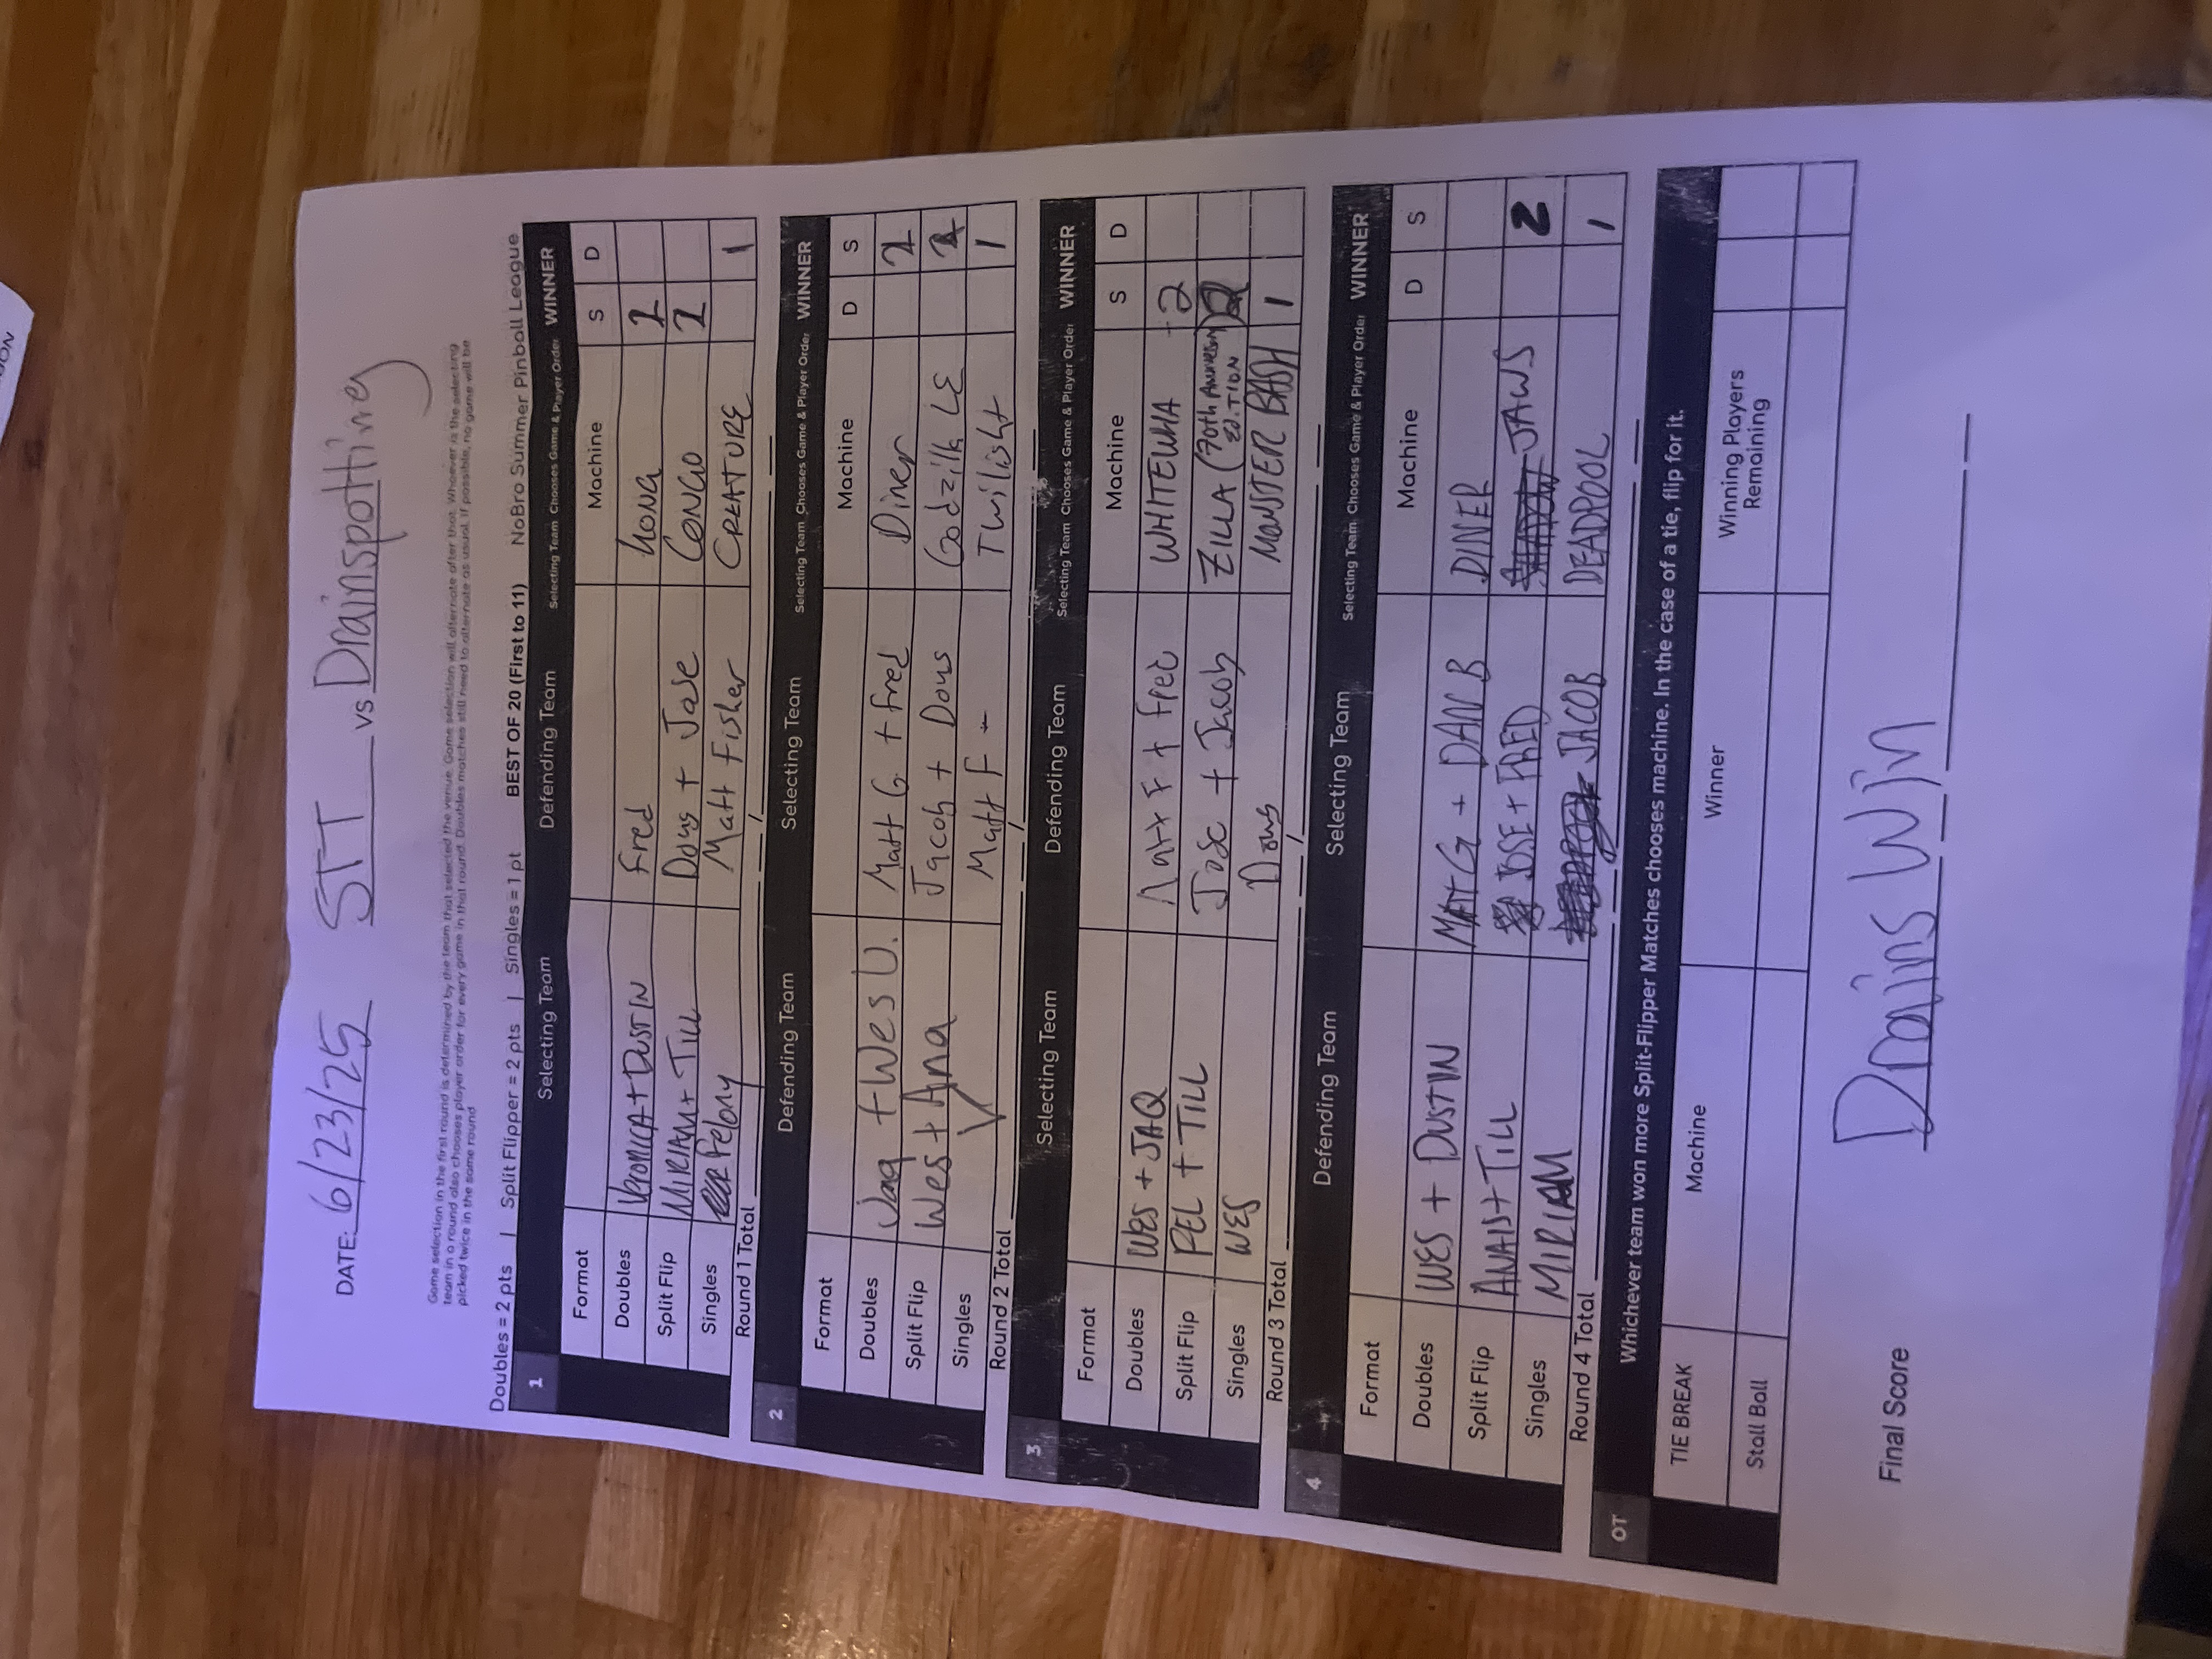 DATE: 6/23/25 STT vs Drainspotting
Game selection in the first round is determined by the team that selected the venue. Game selection will alternate after that. Whoever is the selecting
team in a round also chooses player order for every game in that round. Doubles matches still need to alternate as usual. If possible, no game will be
picked twice in the same round
Doubles = 2 pts | Split Flipper = 2 pts | Singles = 1 pt BEST OF 20 (First to 11) NoBro Summer Pinball League
1 Selecting Team Defending Team Selecting Team Chooses Game & Player Order WINNER
Format Machine S D
Doubles VERONICA + DUSTIN Fred KONG 2
Split Flip MIRIAM + TILL Doug + Jose CONGO 2
Singles Felony Matt Fisher CREATURE 1
Round 1 Total /
2 Defending Team Selecting Team Selecting Team Chooses Game & Player Order WINNER
Format Machine D S
Doubles Jaq + Wes U. Matt G. + Fred Diner 2
Split Flip Wes + Ana Jacob + Doug Godzilla LE 2
Singles V Matt F Twilight 1
Round 2 Total /
3 Selecting Team Defending Team Selecting Team Chooses Game & Player Order WINNER
Format Machine S D
Doubles WES + JAQ Matt F + Fred WHITEWHA 2
Split Flip FEL + TILL Jose + Jacob ZILLA (70th ANNIVERSARY EDITION) 2
Singles WES Doug MONSTER BASH 1
Round 3 Total /
4 Defending Team Selecting Team Selecting Team Chooses Game & Player Order WINNER
Format Machine D S
Doubles WES + DUSTIN MATT G + DAN B DINER
Split Flip ANAIS + TILL JOSE + FRED JAWS 2
Singles MIRIAM JACOB DEADPOOL 1
Round 4 Total /
OT Whichever team won more Split-Flipper Matches chooses machine. In the case of a tie, flip for it.
TIE BREAK Machine Winner Winning Players Remaining
Stall Ball
Final Score Drains Win